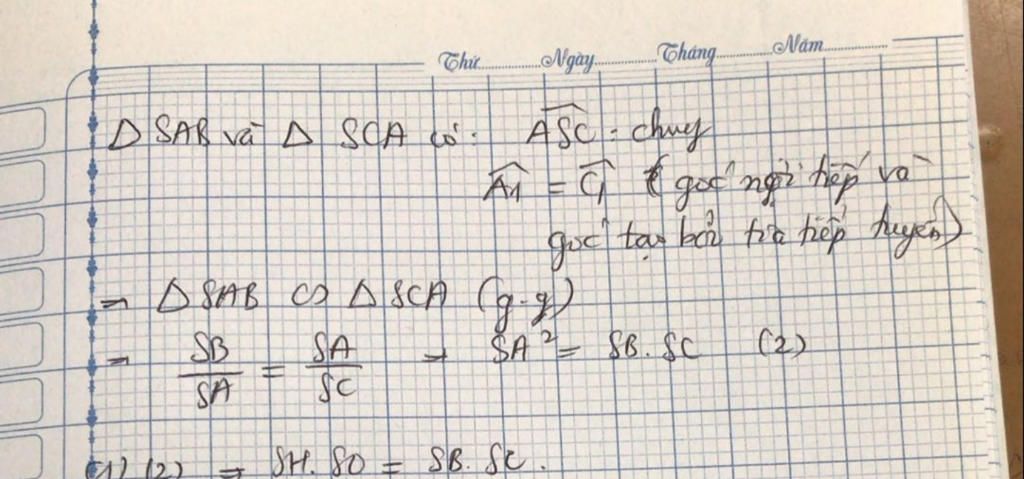 Thứ Ngày Tháng Năm
Δ SAB và Δ SCA có: $\widehat{ASC}$ : chung
$\widehat{A_1}$ = $\widehat{C_1}$ ( góc nội tiếp và
góc tạo bởi tia tiếp tuyến)
→ Δ SAB ∽ Δ SCA (g-g)
→ $\frac{SB}{SA}$ = $\frac{SA}{SC}$ → SA² = SB. SC (2)
(1) (2) → SH. SO = SB. SC.